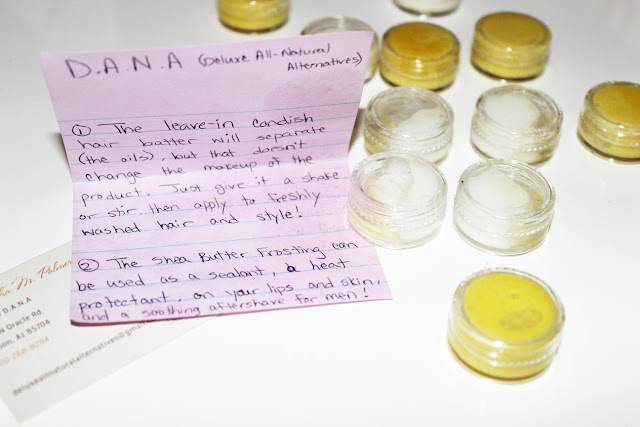 D.A.N.A (Deluxe All-Natural
Alternatives)
① The leave-in Candish
hair batter will separate
(the oils), but that doesn't
change the makeup of the
product. Just give it a shake
or stir, then apply to freshly
washed hair and style!
② The Shea Butter Frosting can
be used as a sealant, a heat
protectant, on your lips and skin,
and a soothing aftershave for men!
M. Palmer
D.A.N.A
N Oracle Rd
AZ 85704
deluxeallnaturalalternatives@gma